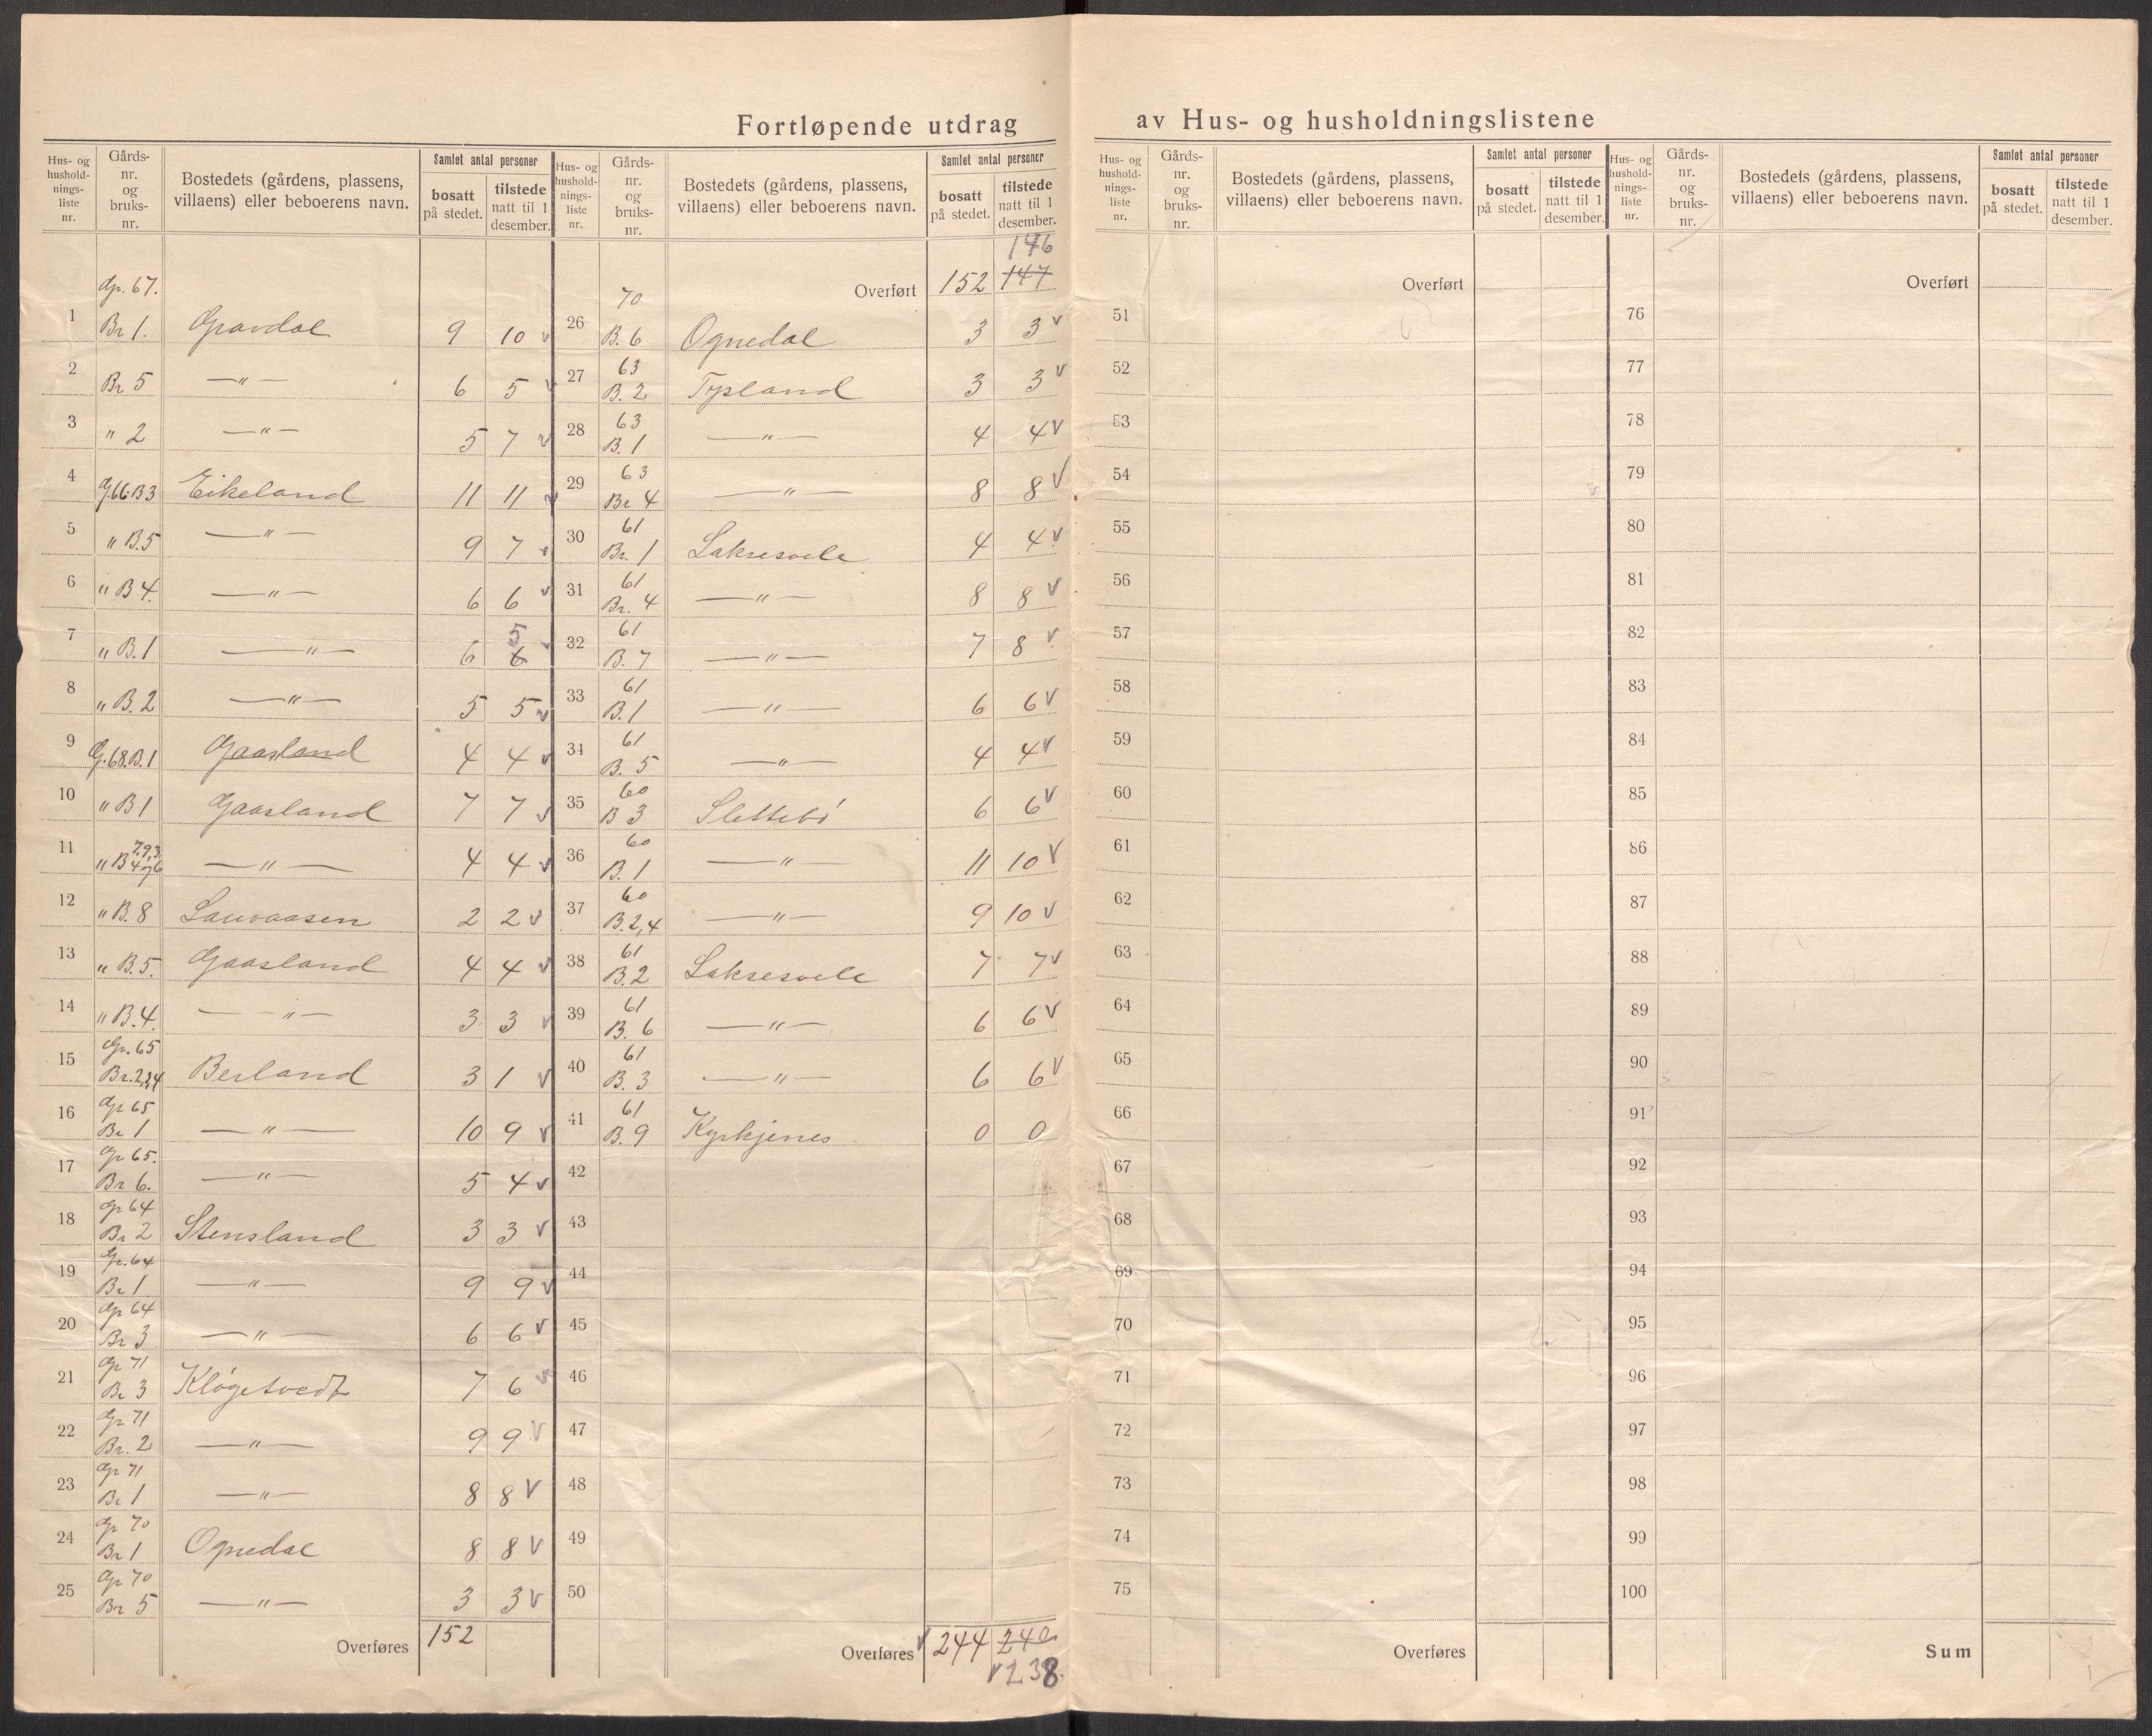 Fortløpende utdrag av Hus- og husholdningslistene
Hus- og hushold-nings-liste nr. | Gårds-nr. og bruks-nr. | Bostedets (gårdens, plassens, villaens) eller beboerens navn. | Samlet antal personer | bosatt på stedet. | tilstede natt til 1 desember.
Gr. 67.
1 Br 1. Gravdal 9 10 v
2 Br 5 —"— 6 5 v
3 " 2 —"— 5 7 v
4 G.66.B3 Eikeland 11 11 v
5 " B.5 —"— 9 7 v
6 " B 4. —"— 6 6 v
5
7 " B.1 —"— 6 6 v
8 " B.2 —"— 5 5 v
9 G.68.B.1 Gaasland 4 4 v
10 " B 1 Gaasland 7 7 v
11 " B 7,9,3 4 og 6 —"— 4 4 v
12 " B.8 Lauvaasen 2 2 v
13 " B.5. Gaasland 4 4 v
14 " B.4. —"— 3 3 v
15 Gr. 65 Br. 2,3,4 Berland 3 1 v
16 Gr 65 Br 1 —"— 10 9 v
17 Gr 65. Br 6. —"— 5 4 v
18 Gr 64 Br 2 Stensland 3 3 v
19 Gr. 64 Br 1 —"— 9 9 v
20 Gr 64 Br 3 —"— 6 6 v
21 Gr 71 Br 3 Kløgetvedt 7 6 v
22 Gr 71 Br. 2 —"— 9 9 v
23 Gr 71 Br 1 —"— 8 8 v
24 Gr 70 Br 1 Ognedal 8 8 v
25 Gr 70 Br 5 —"— 3 3 v
Overføres 152
Hus- og hushold-nings-liste nr. | Gårds-nr. og bruks-nr. | Bostedets (gårdens, plassens, villaens) eller beboerens navn. | Samlet antal personer | bosatt på stedet. | tilstede natt til 1 desember.
146
Overført 152 147
26 70 B. 6 Ognedal 3 3 v
27 63 B. 2 Tysland 3 3 v
28 63 B. 1 —"— 4 4 v
29 63 Br 4 —"— 8 8 v
30 61 Br. 1 Laksesvele 4 4 v
31 61 Br. 4 —"— 8 8 v
32 61 B. 7 —"— 7 8 v
33 61 B. 1 —"— 6 6 v
34 61 B. 5 —"— 4 4 v
35 60 B 3 Slettebø 6 6 v
36 60 B. 1 —"— 11 10 v
37 60 B. 2,4 —"— 9 10 v
38 61 B. 2 Laksesvele 7 7 v
39 61 B. 6 —"— 6 6 v
40 61 B. 3 —"— 6 6 v
41 61 B. 9 Kyrkjenes 0 0
42
43
44
45
46
47
48
49
50
Overføres v 244 240
v 238.
Hus- og hushold-nings-liste nr. | Gårds-nr. og bruks-nr. | Bostedets (gårdens, plassens, villaens) eller beboerens navn. | Samlet antal personer | bosatt på stedet. | tilstede natt til 1 desember.
Overført
51
52
53
54
55
56
57
58
59
60
61
62
63
64
65
66
67
68
69
70
71
72
73
74
75
Overføres
Hus- og hushold-nings-liste nr. | Gårds-nr. og bruks-nr. | Bostedets (gårdens, plassens, villaens) eller beboerens navn. | Samlet antal personer | bosatt på stedet. | tilstede natt til 1 desember.
Overført
76
77
78
79
80
81
82
83
84
85
86
87
88
89
90
91
92
93
94
95
96
97
98
99
100
Sum